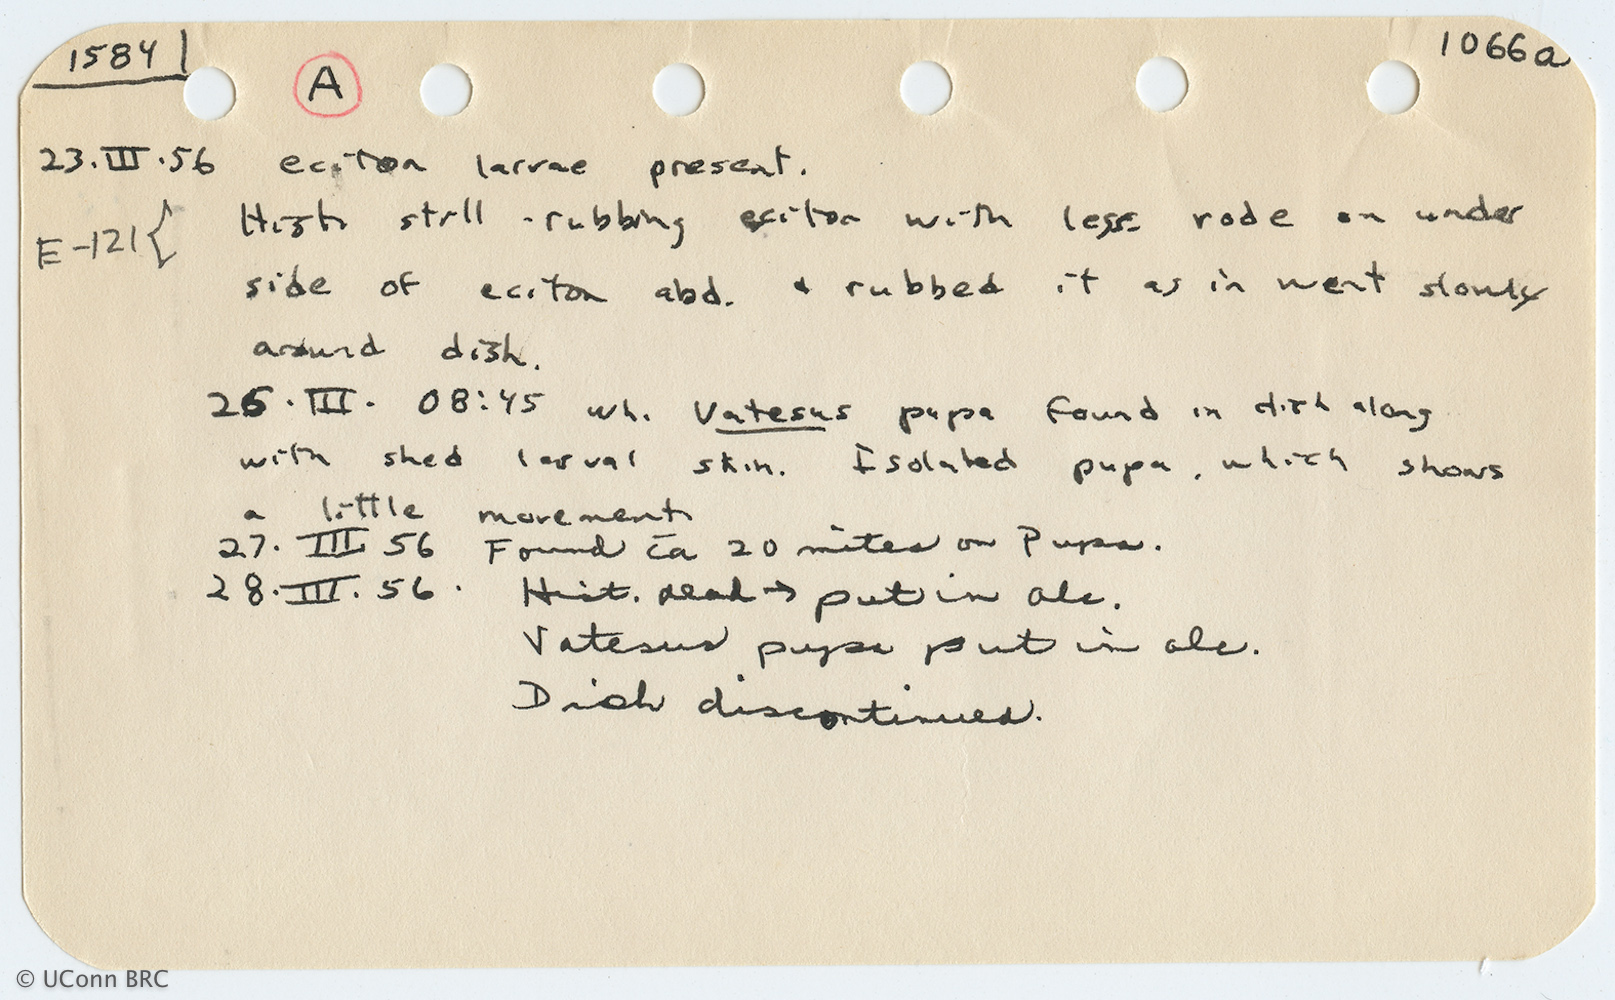 1584
A
1066a
23.III.56 eciton larvae present.
E-121 { Hist still rubbing eciton with legs rode on under
side of eciton abd. & rubbed it as in went slowly
around dish.
26.III. 08:45 wh. Vatesus pupa found in dish along
with shed larval skin. Isolated pupa, which shows
a little movement
27. III 56 Found ca 20 mites on Pupa.
28.III.56. Hist. dead → put in alc.
Vatesus pupa put in alc.
Dish discontinued.
© UConn BRC